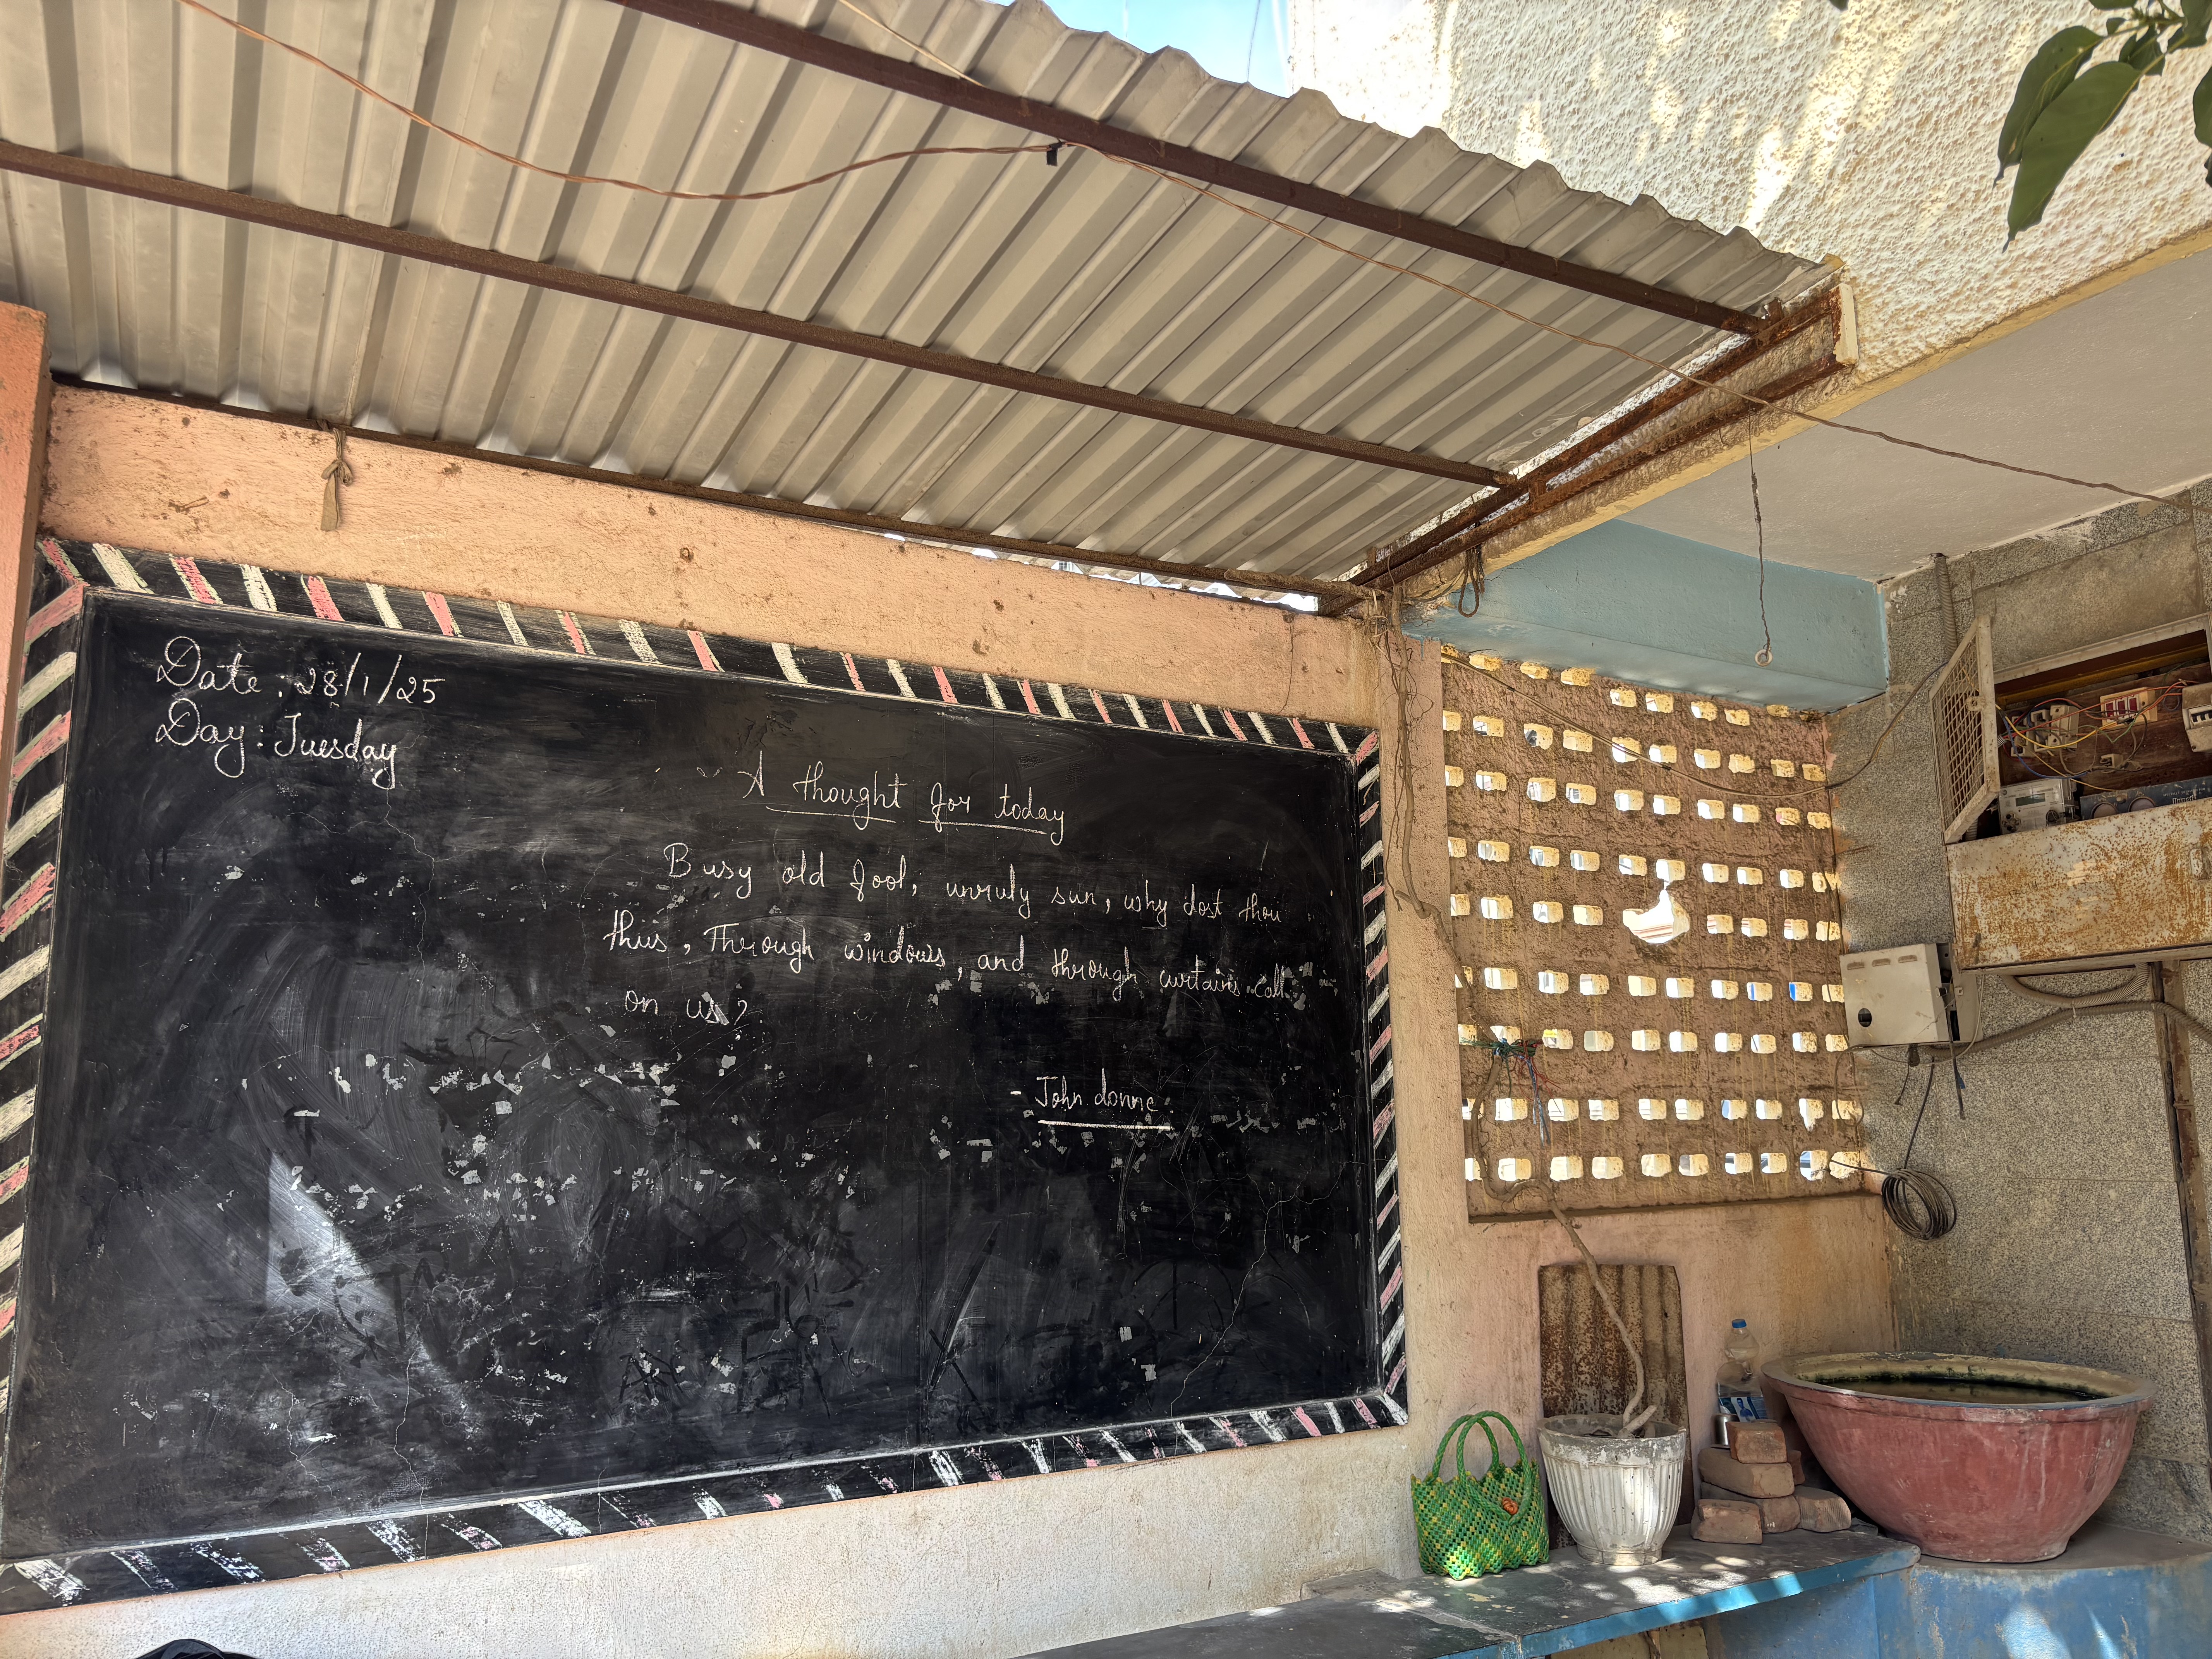 Date: 28/1/25
Day: Tuesday
A thought for today
Busy old fool, unruly sun, why dost thou
thus, Through windows, and through curtains call
on us?
- John donne